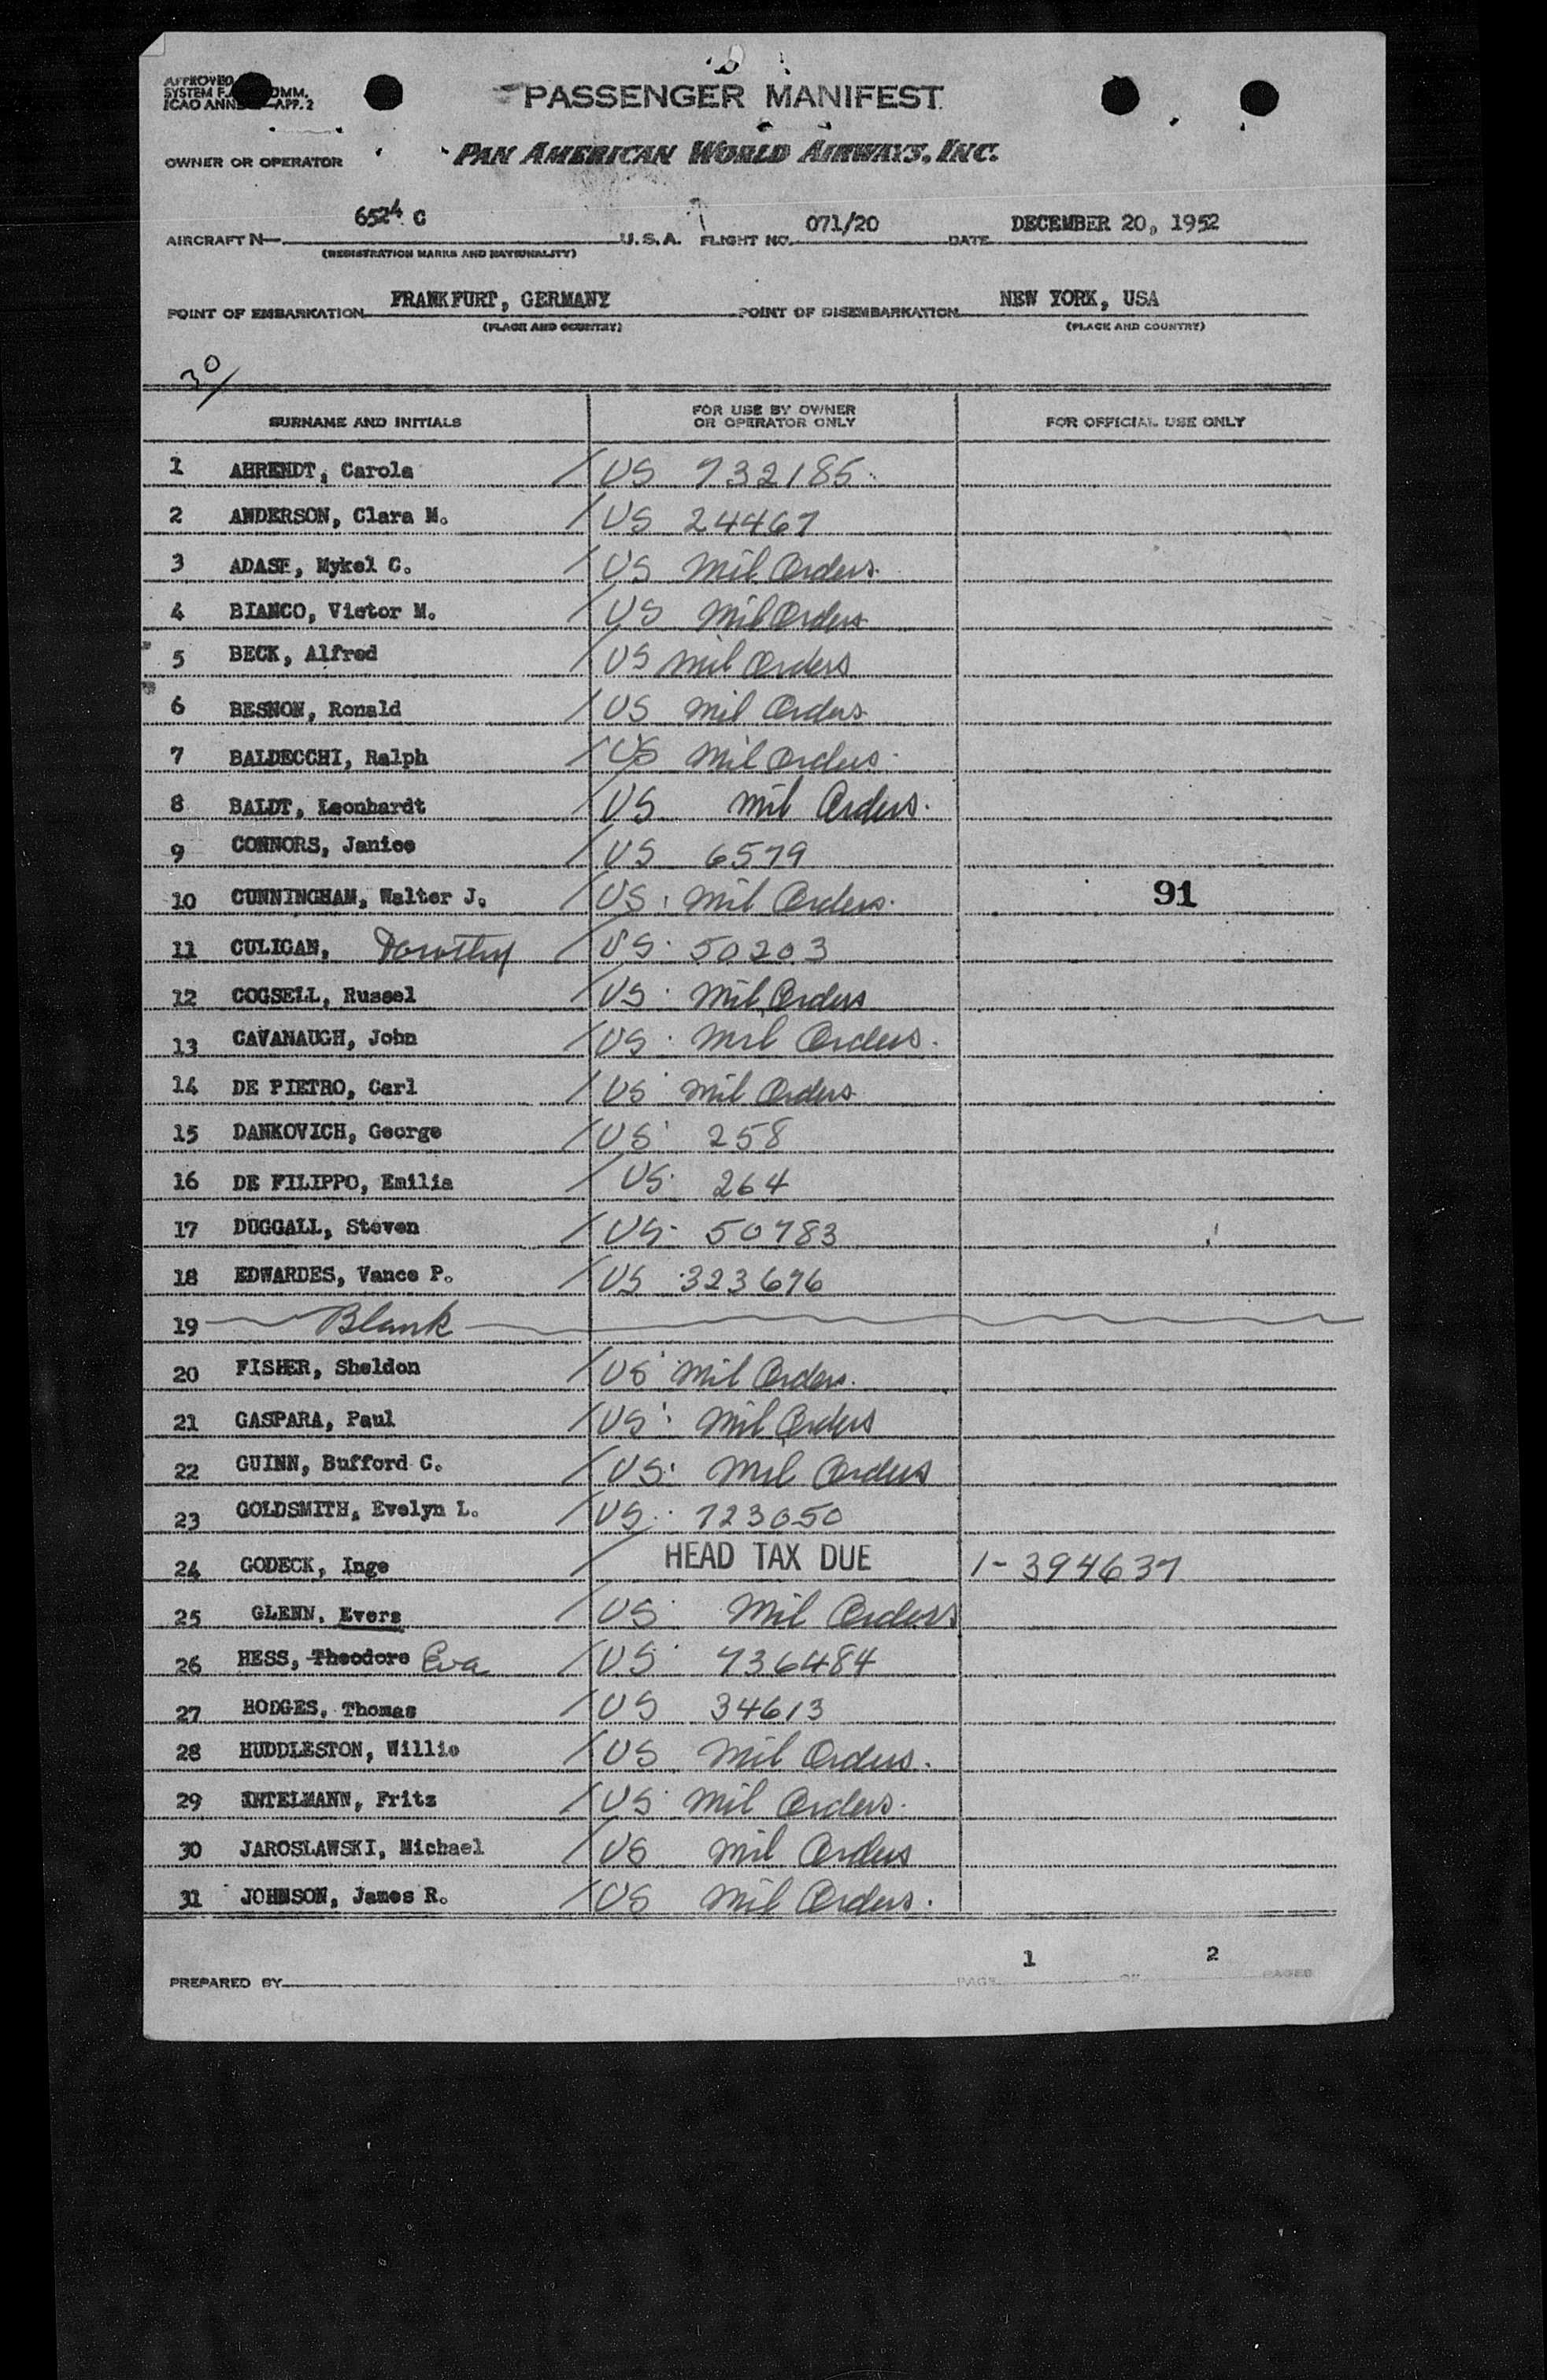 PASSENGER MANIFEST
APPROVED
SYSTEM F. COMM.
ICAO ANNE APP. 2
OWNER OR OPERATOR PAN AMERICAN WORLD AIRWAYS, INC.
AIRCRAFT N— 6524 C U.S.A. FLIGHT NO. 071/20 DATE DECEMBER 20, 1952
(REGISTRATION MARKS AND NATIONALITY)
POINT OF EMBARKATION FRANKFURT, GERMANY POINT OF DISEMBARKATION NEW YORK, USA
(PLACE AND COUNTRY) (PLACE AND COUNTRY)
30/
SURNAME AND INITIALS FOR USE BY OWNER OR OPERATOR ONLY FOR OFFICIAL USE ONLY
1 AHRENDT, Carola / US 732185
2 ANDERSON, Clara M. / US 24467
3 ADASE, Mykel C. / US Mil Orders
4 BIANCO, Victor M. / US Mil Orders
5 BECK, Alfred / US Mil Orders
6 BESNON, Ronald / US Mil Orders
7 BALDECCHI, Ralph / US Mil Orders
8 BALDT, Leonhardt / US Mil Orders.
9 CONNORS, Janice / US 6579
10 CUNNINGHAM, Walter J. / US Mil Orders. 91
11 CULIGAN, Dorothy / US 50203
12 COGSELL, Russel / US Mil Orders
13 CAVANAUGH, John / US Mil Orders.
14 DE PIETRO, Carl / US Mil Orders
15 DANKOVICH, George / US 258
16 DE FILIPPO, Emilia / US 264
17 DUGGALL, Steven / US 50783
18 EDWARDES, Vance P. / US 323676
19 Blank
20 FISHER, Sheldon / US Mil Orders.
21 GASPARA, Paul / US Mil Orders
22 GUINN, Bufford C. / US Mil Orders
23 GOLDSMITH, Evelyn L. / US 723050
24 GODECK, Inge / HEAD TAX DUE 1-394637
25 GLENN, Evers / US Mil Orders
26 HESS, Theodore Eva / US 736484
27 HODGES, Thomas / US 34613
28 HUDDLESTON, Willie / US Mil Orders.
29 INTELMANN, Fritz / US Mil Orders.
30 JAROSLAWSKI, Michael / US Mil Orders
31 JOHNSON, James R. / US Mil Orders.
PREPARED BY PAGE 1 OF 2 PAGES